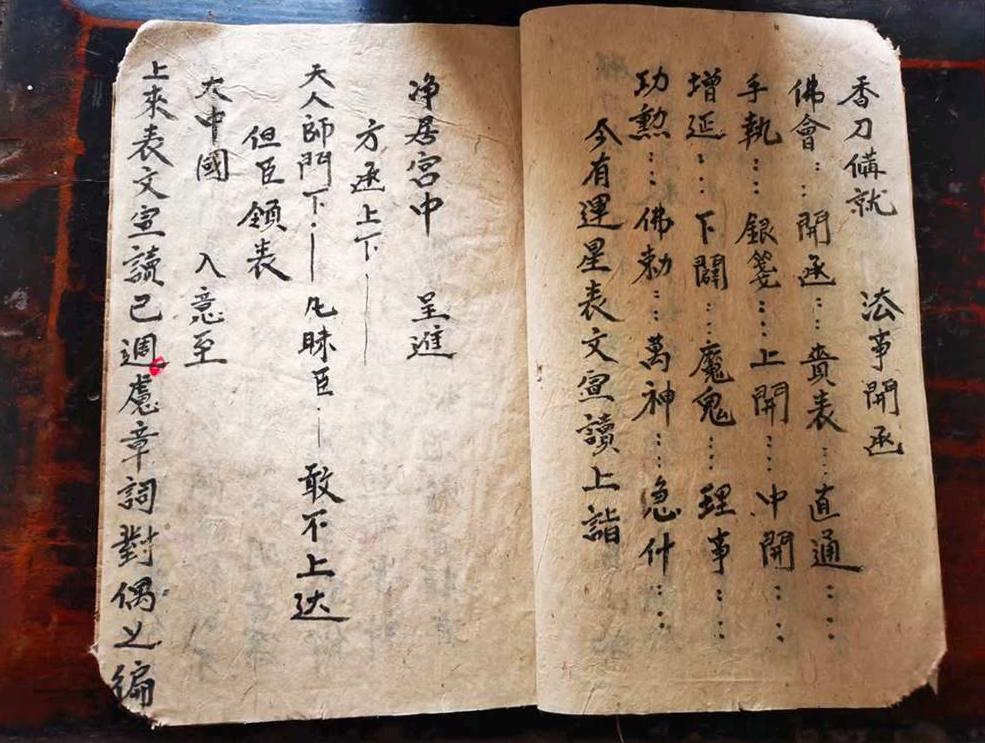 香刀備就 法事開函
佛會：開函：賫表…直通…
手執：：銀箋：…上開：…中開：
增延：…下關：…魔鬼：…理事：：
功勲：…佛勅：：萬神：…急什：…
今有運星表文宣讀上詣
净居宮中 呈進
方函上下——
天人師門下：——凡昧臣：—敢不上达
但臣領表
大中國 入意至
上來表文宣讀已週慮章詞對偶之編